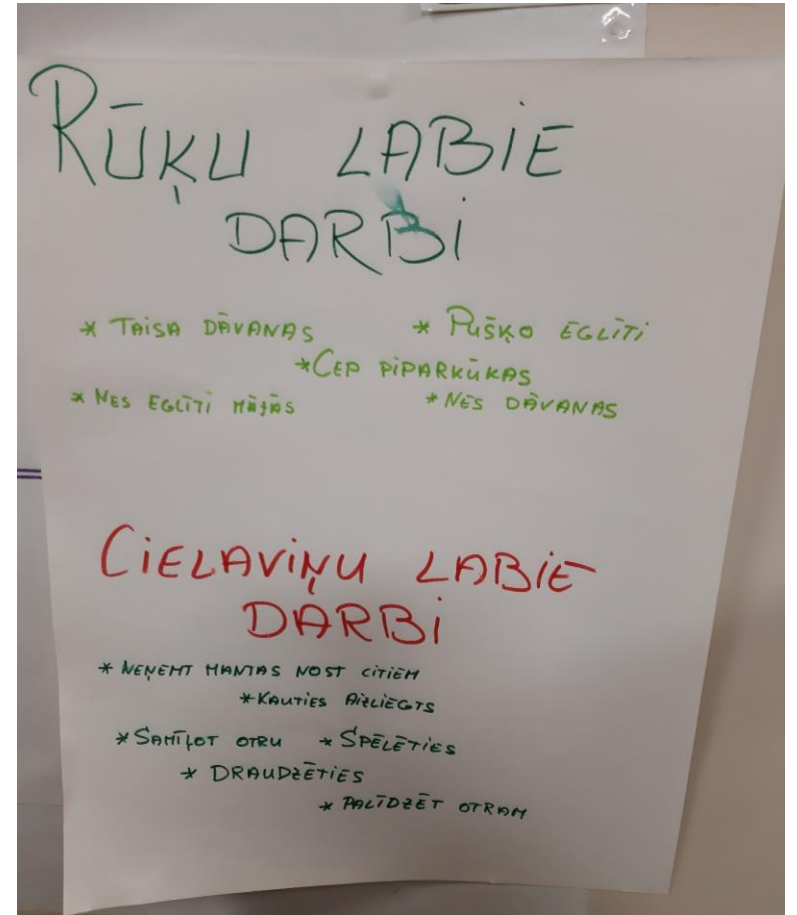 RŪĶU LABIE
DARBI
* TAISA DĀVANAS * PUŠĶO EGLĪTI
* CEP PIPARKŪKAS
* NES EGLĪTI MĀJĀS * NES DĀVANAS
CIELAVIŅU LABIE
DARBI
* NEŅEMT MANTAS NOST CITIEM
* KAUTIES AIZLIEGTS
* SAMĪĻOT OTRU * SPĒLĒTIES
* DRAUDZĒTIES
* PALĪDZĒT OTRAM